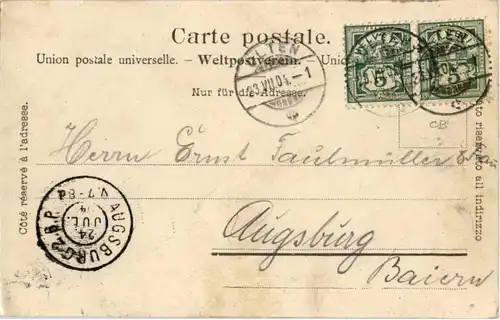 Carte postale.
Union postale universelle. – Weltpostverein. – Unio
Nur für die Adresse.
OLTEN
23.VII.04.–1
OLTEN
5
5
CB
Herrn Ernst Faulmüller
Augsburg
Baiern
Côté réservé à l'adresse.
Lato riservato all indirizzo
AUGSBURG 2. B.P.
24
JUL
04
V.7-8